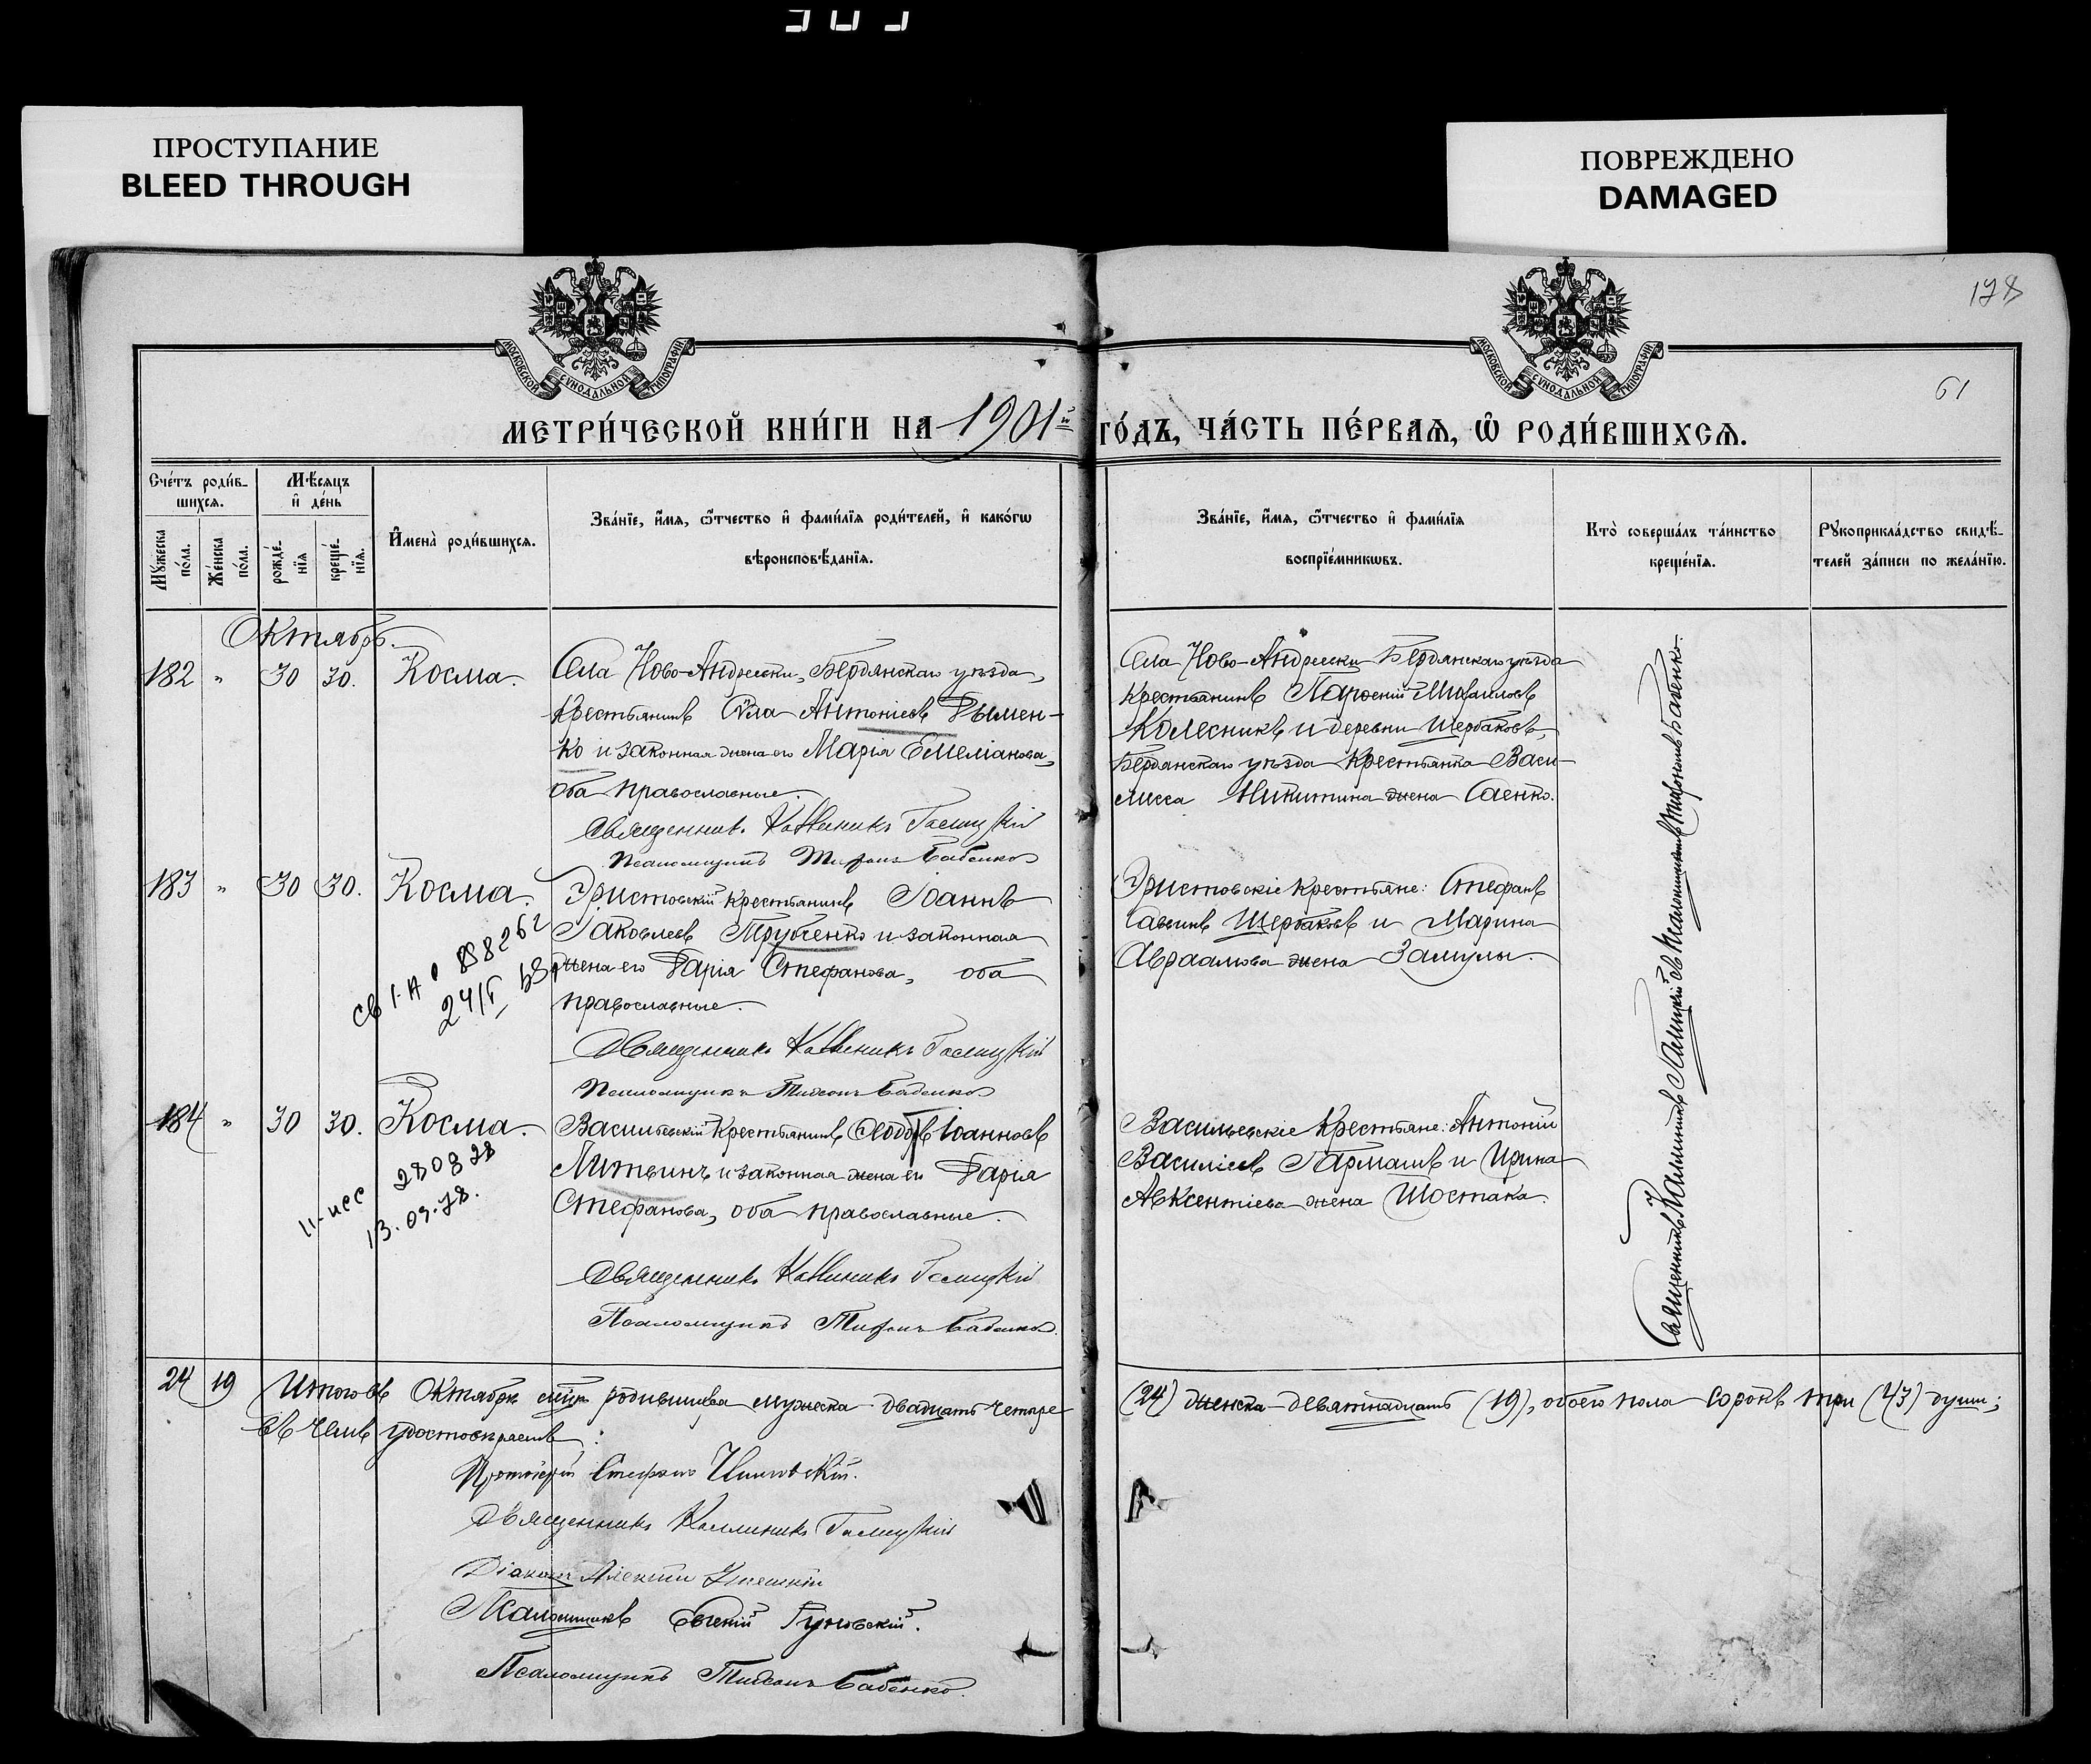 ПРОСТУПАНИЕ
BLEED THROUGH
ПОВРЕЖДЕНО
DAMAGED
178
61
МОСКОВСКОЙ СѴНОДАЛЬНОЙ ТИПОГРАФІИ
МОСКОВСКОЙ СѴНОДАЛЬНОЙ ТИПОГРАФІИ
МЕТРИ́ЧЕСКОЙ КНИ́ГИ НА 1901й ГО́ДЪ, ЧА́СТЬ ПЕ́РВАѦ, Ѡ РОДИ́ВШИХСѦ.
Сче́тъ роди́в-
шихсѧ.
Мѣ́сѧцъ
и҆ де́нь
Мꙋжеска по́ла.
Же́нска по́ла.
рожде́-
нїѧ
креще́-
нїѧ.
И҆мена̀ роди́вшихсѧ.
Зва́нїе, и҆́мѧ, ѻ҆́тчество и҆ фами́лїѧ роди́телей, и҆ како́гѡ
вѣроисповѣ́данїѧ.
Зва́нїе, и҆́мѧ, ѻ҆́тчество и҆ фами́лїѧ
воспрїе́мникѡвъ.
Кто̀ соверша́лъ та́инство
креще́нїѧ.
Рꙋкоприкла́дство свидѣ́-
телей за́писи по жела́нїю.
Октябрь.
182 " 30 30. Косма.
Села Ново-Андреевки, Бердянскаго уѣзда,
крестьянинъ Сѵла Антоніевъ Дымен-
ко и законная жена его Марія Емеліанова,
оба православные.
Священникъ Каллиникъ Галицкій
Псаломщикъ Тифонъ Бабенко
Села Ново-Андреевки Бердянскаго уѣзда
крестьянинъ Парѳеній Михаиловъ
Колесникъ и деревни Щербаковъ,
Бердянскаго уѣзда крестьянка Васи-
лисса Никитина жена Саенко.
183 " 30 30. Косма.
Эристовскій крестьянинъ Іоаннъ
Іаковлевъ Трубченко и законная
жена его Дарія Стефанова, оба
православные.
Священникъ Каллиникъ Галицкій
Псаломщикъ Тифонъ Бабенко
Эристовскіе крестьяне: Стефанъ
Саввинъ Щербаковъ и Марина
Авраамова жена Замулы.
184 " 30 30. Косма.
280828
13.09.78.
Васильевскій крестьянинъ Ѳеодоръ Іоанновъ
Литвинъ и законная жена его Дарія
Стефанова, оба православные.
Священникъ Каллиникъ Галицкій
Псаломщикъ Тифонъ Бабенко
Васильевскіе крестьяне: Антоній
Василіевъ Гармашъ и Ирина
Авксентіева жена Шостака.
Священникъ Каллиникъ Галицкій съ Псаломщикомъ Тифономъ Бабенко.
24 19 Итого въ Октябрѣ мцѣ родившихся мужеска двадцать четыре (24) женска девятнадцать (19), обоего пола сорокъ три (43) души;
въ чемъ удостовѣряемъ:
Протоіерей Стефанъ
Священникъ Каллиникъ Галицкій
Діаконъ Алексій
Псаломщикъ Евгеній
Псаломщикъ Тифонъ Бабенко.